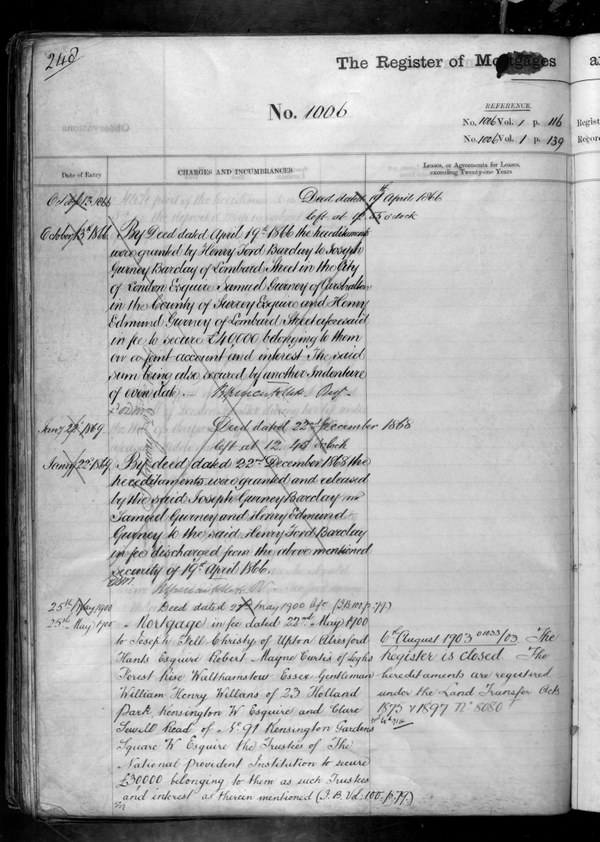 248
The Register of Mortgages
a
No. 1006
REFERENCE.
No. 1006 Vol. 1 p. 116
No. 1006 Vol. 1 p. 139
Regist
Recor
Date of Entry
CHARGES AND INCUMBRANCES
Leases, or Agreements for Leases,
exceeding Twenty-one Years
Deed dated 19th April 1866
left at o'clock
October 13th 1866
By Deed dated April 19th 1866 the hereditaments
were granted by Henry Ford Barclay to Joseph
Gurney Barclay of Lombard Street in the City
of London Esquire Samuel Gurney of Carshalton
in the County of Surrey Esquire and Henry
Edmund Gurney of Lombard Street aforesaid
in fee to secure £40,000 belonging to them
on a joint account and interest The said
sum being also secured by another Indenture
of even date
Jany 22nd 1869
Deed dated 22nd December 1868
left at 12.45 o'clock
Jany 22nd 1869
By deed dated 22nd December 1868 the
hereditaments were granted and released
by the said Joseph Gurney Barclay
Samuel Gurney and Henry Edmund
Gurney to the said Henry Ford Barclay
in fee discharged from the above mentioned
security of 19th April 1866.
25th May 1900
Deed dated 22nd May 1900 (I.B. 100. p. 77.)
25th May 1900
Mortgage in fee dated 22nd May 1900
to Joseph Fell Christy of Upton Alresford
Hants Esquire Robert Mayne Curtis of Leighs
Forest Rise Walthamstow Essex Gentleman
William Henry Willans of 23 Holland
Park Kensington W Esquire and Clare
Sewell Read of No. 91 Kensington Gardens
Square W Esquire the Trustees of The
National Provident Institution to secure
£30000 belonging to them as such Trustees
and interest as therein mentioned (I.B. Vol. 100. p. 77.)
6th August 1903 The
Register is closed The
hereditaments are registered
under the Land Transfer Acts
1875 & 1897 No 8080